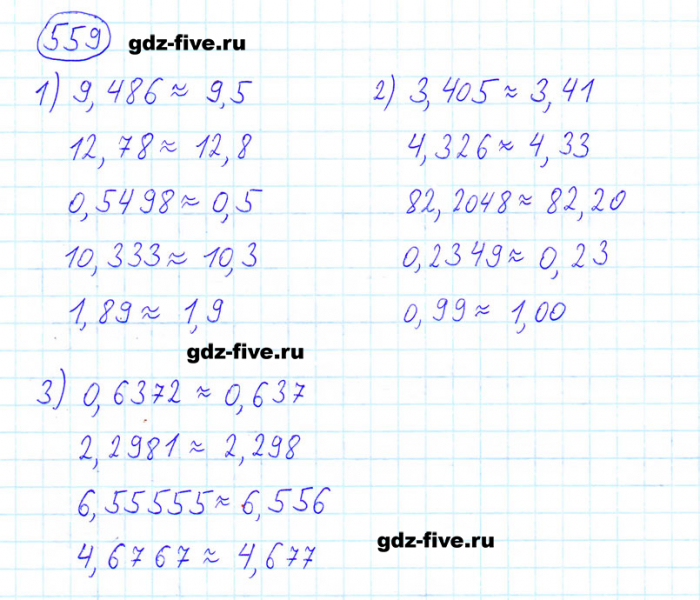 559 gdz-five.ru
1) 9,486 ≈ 9,5
12,78 ≈ 12,8
0,5498 ≈ 0,5
10,333 ≈ 10,3
1,89 ≈ 1,9
2) 3,405 ≈ 3,41
4,326 ≈ 4,33
82,2048 ≈ 82,20
0,2349 ≈ 0,23
0,99 ≈ 1,00
gdz-five.ru
3) 0,6372 ≈ 0,637
2,2981 ≈ 2,298
6,55555 ≈ 6,556
4,6767 ≈ 4,677
gdz-five.ru